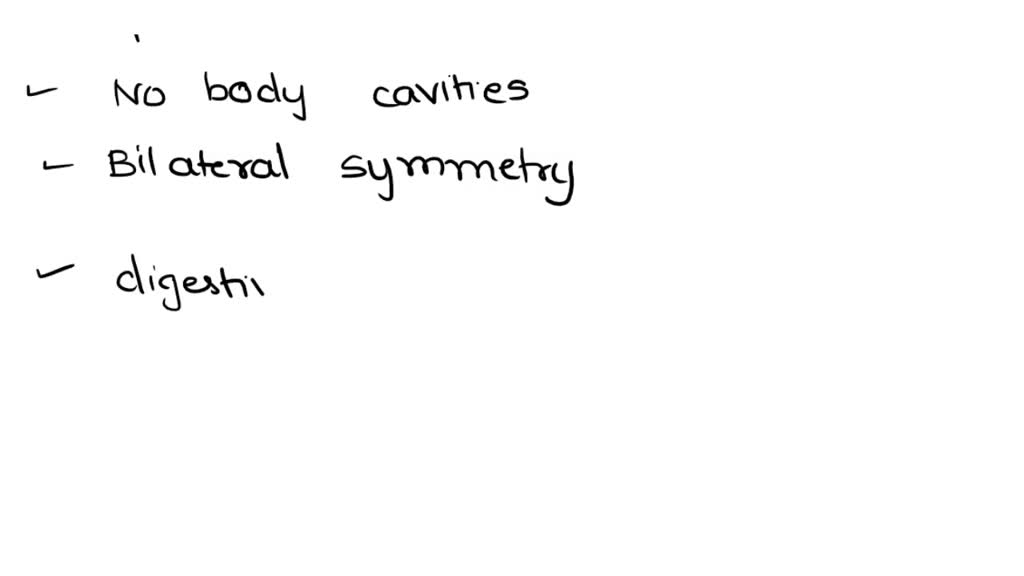 - No body cavities
- Bilateral symmetry
- digesti